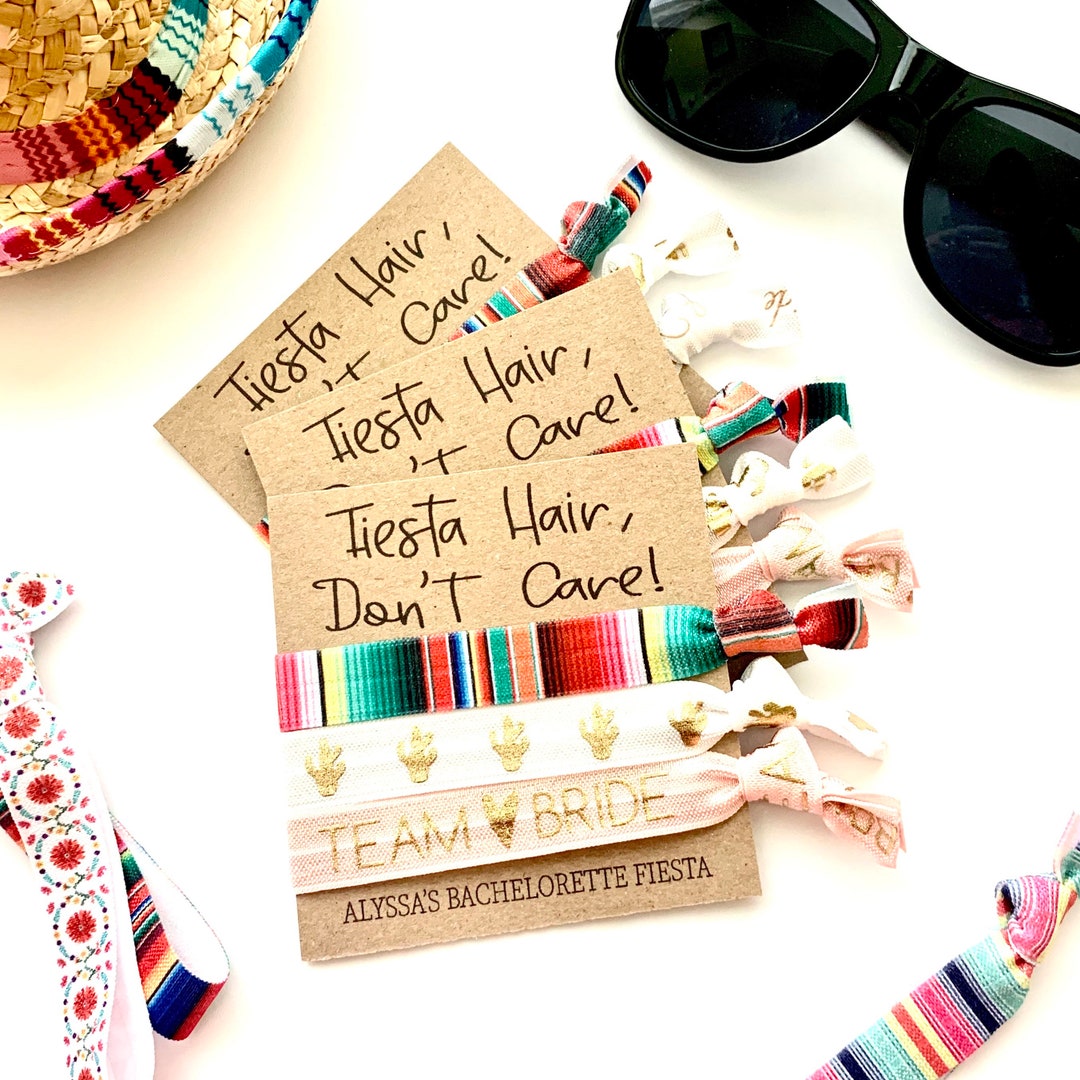 Fiesta Hair,
Care!
Fiesta Hair,
Care!
Fiesta Hair,
Don't Care!
TEAM BRIDE
ALYSSA'S BACHELORETTE FIESTA